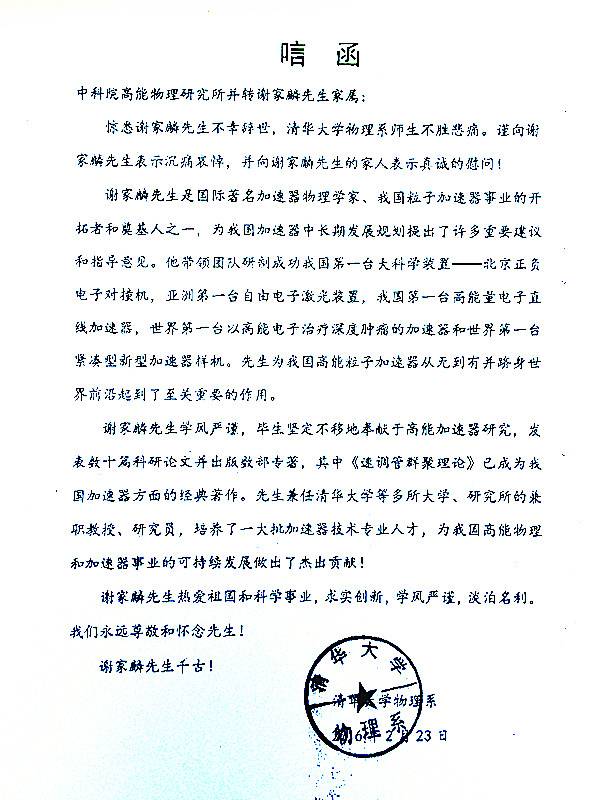 唁 函
中科院高能物理研究所并转谢家麟先生家属：
惊悉谢家麟先生不幸辞世，清华大学物理系师生不胜悲痛。谨向谢
家麟先生表示沉痛哀悼，并向谢家麟先生的家人表示真诚的慰问！
谢家麟先生是国际著名加速器物理学家、我国粒子加速器事业的开
拓者和奠基人之一，为我国加速器中长期发展规划提出了许多重要建议
和指导意见。他带领团队研制成功我国第一台大科学装置——北京正负
电子对撞机，亚洲第一台自由电子激光装置，我国第一台高能量电子直
线加速器，世界第一台以高能电子治疗深度肿瘤的加速器和世界第一台
紧凑型新型加速器样机。先生为我国高能粒子加速器从无到有并跻身世
界前沿起到了至关重要的作用。
谢家麟先生学风严谨，毕生坚定不移地奉献于高能加速器研究，发
表数十篇科研论文并出版数部专著，其中《速调管群聚理论》已成为我
国加速器方面的经典著作。先生兼任清华大学等多所大学、研究所的兼
职教授、研究员，培养了一大批加速器技术专业人才，为我国高能物理
和加速器事业的可持续发展做出了杰出贡献！
谢家麟先生热爱祖国和科学事业，求实创新，学风严谨，淡泊名利。
我们永远尊敬和怀念先生！
谢家麟先生千古！
清华大学物理系
2016年2月23日
清华大学
物理系